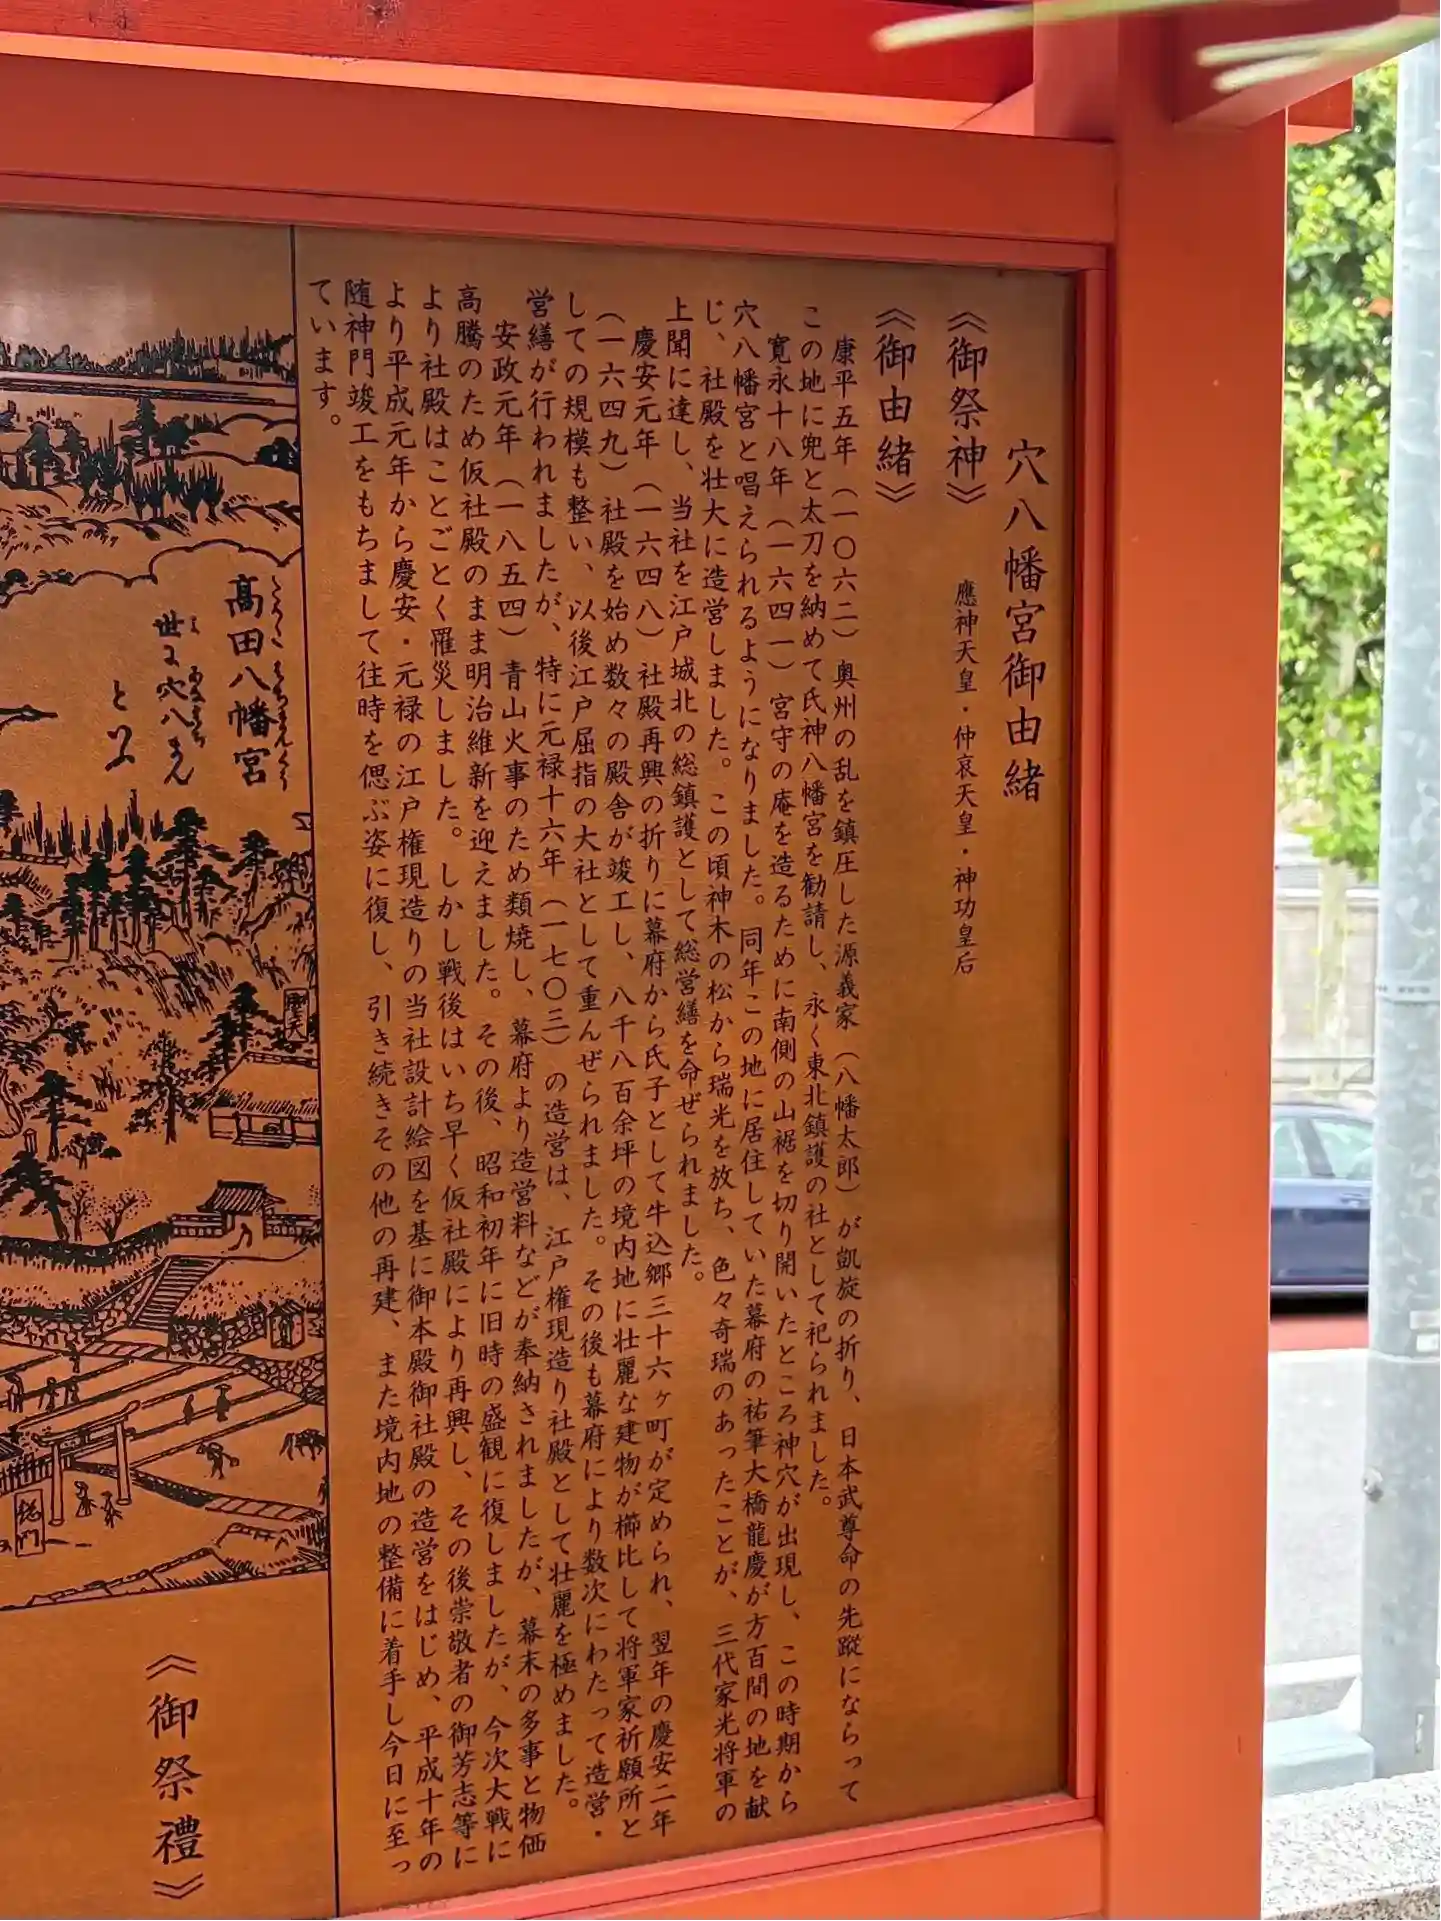 穴八幡宮御由緒
《御祭神》 應神天皇・仲哀天皇・神功皇后
《御由緒》
康平五年（一〇六二）奥州の乱を鎮圧した源義家（八幡太郎）が凱旋の折り、日本武尊命の先蹤にならって
この地に兜と太刀を納めて氏神八幡宮を勧請し、永く東北鎮護の社として祀られました。
寛永十八年（一六四一）宮守の庵を造るために南側の山裾を切り開いたところ神穴が出現し、この時期から
穴八幡宮と唱えられるようになりました。同年この地に居住していた幕府の祐筆大橋龍慶が方百間の地を献
じ、社殿を壮大に造営しました。この頃神木の松から瑞光を放ち、色々奇瑞のあったことが、三代家光将軍の
上聞に達し、当社を江戸城北の総鎮護として総営繕を命ぜられました。
慶安元年（一六四八）社殿再興の折りに幕府から氏子として牛込郷三十六ヶ町が定められ、翌年の慶安二年
（一六四九）社殿を始め数々の殿舎が竣工し、八千八百余坪の境内地に壮麗な建物が櫛比して将軍家祈願所と
しての規模も整い、以後江戸屈指の大社として重んぜられました。その後も幕府により数次にわたって造営・
営繕が行われましたが、特に元禄十六年（一七〇三）の造営は、江戸権現造り社殿として壮麗を極めました。
安政元年（一八五四）青山火事のため類焼し、幕府より造営料などが奉納されましたが、幕末の多事と物価
高騰のため仮社殿のまま明治維新を迎えました。その後、昭和初年に旧時の盛観に復しましたが、今次大戦に
より社殿はことごとく罹災しました。しかし戦後はいち早く仮社殿により再興し、その後崇敬者の御芳志等に
より平成元年から慶安・元禄の江戸権現造りの当社設計絵図を基に御本殿御社殿の造営をはじめ、平成十年の
随神門竣工をもちまして往時を偲ぶ姿に復し、引き続きその他の再建、また境内地の整備に着手し今日に至っ
ています。
高田八幡宮
世に穴八まん
といふ
《御祭禮》